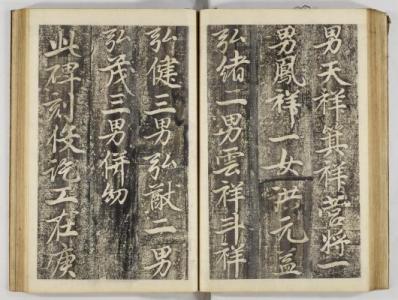 男天祥箕祥營將一
男鳳祥一女洪元益
弘緒二男雲祥斗祥
弘健三男弘猷二男
弘茂三男併幼
此碑刻役訖工在庚